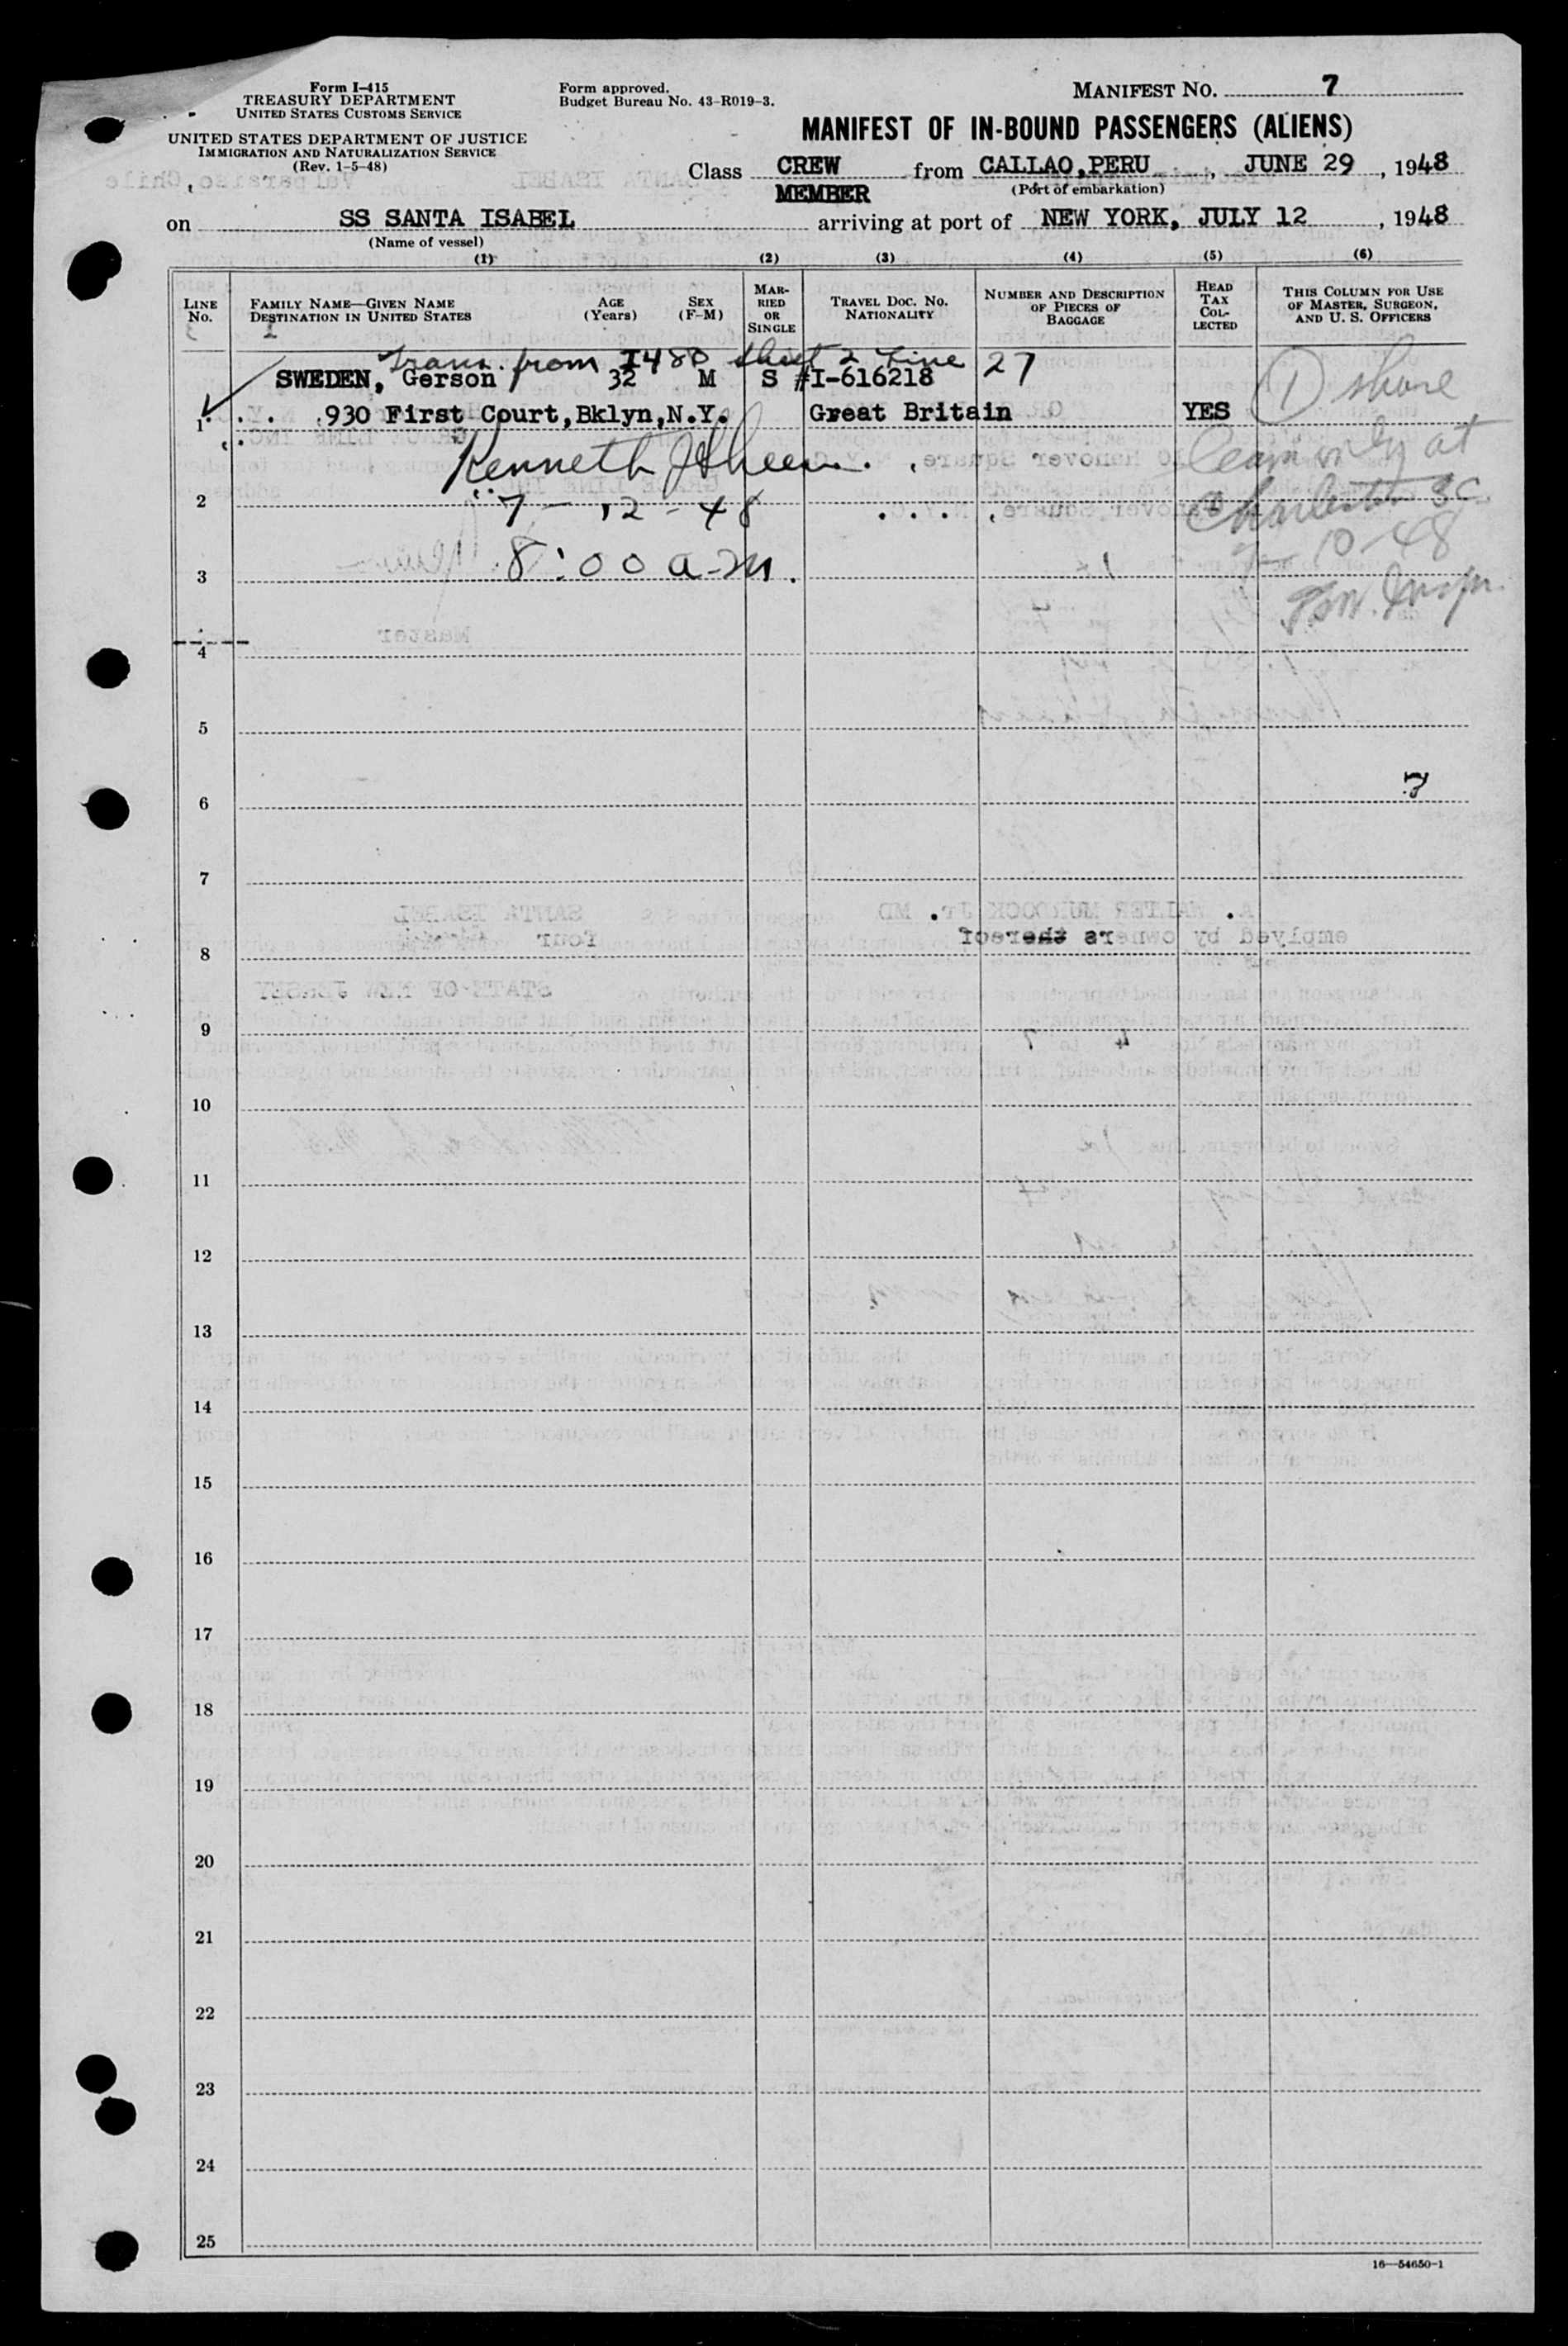 Form I-415
TREASURY DEPARTMENT
UNITED STATES CUSTOMS SERVICE
UNITED STATES DEPARTMENT OF JUSTICE
IMMIGRATION AND NATURALIZATION SERVICE
(Rev. 1-5-48)
Form approved.
Budget Bureau No. 43-R019-3.
MANIFEST NO. 7
MANIFEST OF IN-BOUND PASSENGERS (ALIENS)
Class CREW MEMBER from CALLAO,PERU, JUNE 29, 1948
(Port of embarkation)
on SS SANTA ISABEL arriving at port of NEW YORK, JULY 12, 1948
(Name of vessel)
(1) (2) (3) (4) (5) (6)
LINE No.
FAMILY NAME—GIVEN NAME
DESTINATION IN UNITED STATES
AGE (Years)
SEX (F-M)
MARRIED OR SINGLE
TRAVEL DOC. NO.
NATIONALITY
NUMBER AND DESCRIPTION OF PIECES OF BAGGAGE
HEAD TAX COLLECTED
THIS COLUMN FOR USE OF MASTER, SURGEON, AND U. S. OFFICERS
Trans. from I480 Sheet 2 Line 27
SWEDEN, Gerson 32 M S #I-616218
1 930 First Court,Bklyn,N.Y. Great Britain YES
Kenneth
2 7-12-48
at Charleston SC
10-48
3 8:00 a.m.
4
5
6
7
8
9
10
11
12
13
14
15
16
17
18
19
20
21
22
23
24
25
16—54650-1